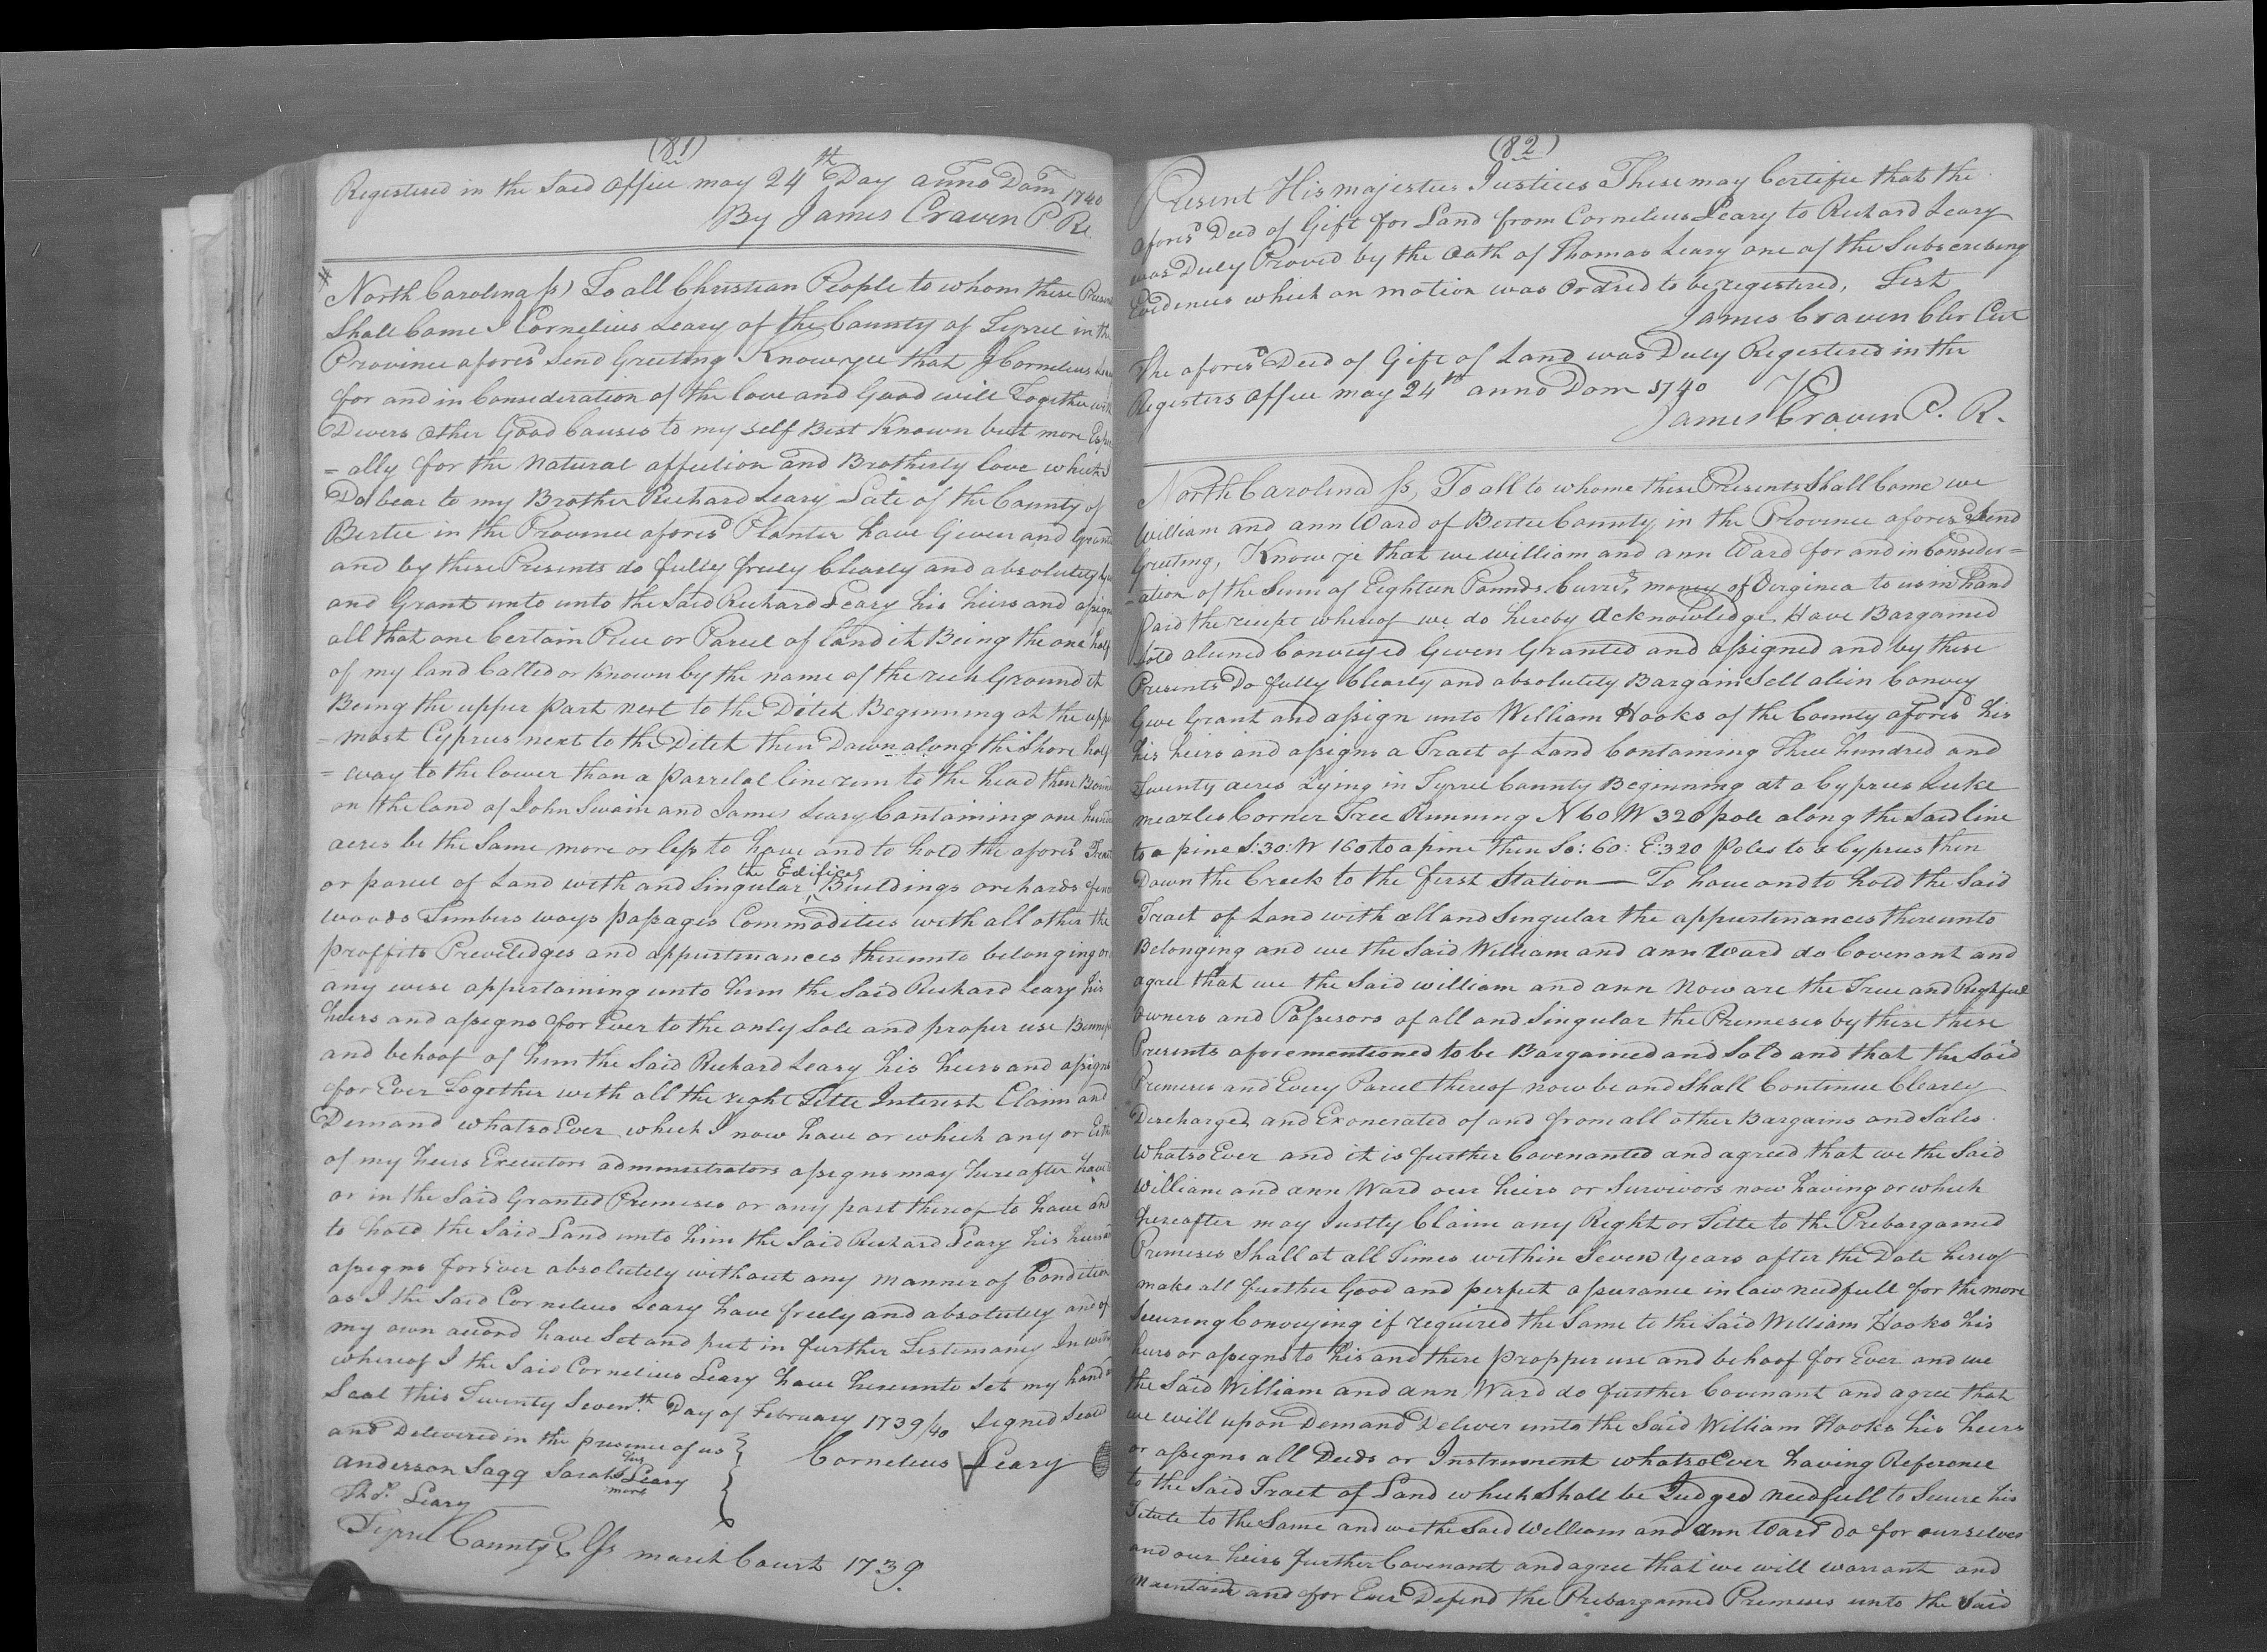 (81)
Registered in the Said Office may 24th Day anno Dom 1740
By James Craven P. Re.
North Carolina ss) To all Christian People to whom these Presents
Shall Come I Cornelius Leary of the County of Tyrrel in the
Province afores'd Send Greeting Know yee that I Cornelius
for and in Consideration of the love and Good will Together with
Divers other Good Causes to my self Best Known butt more Espe
=ally for the Natural affection and Brotherly love which I
Do bear to my Brother Richard Leary Late of the County of
Bertie in the Province afores'd Planter have Given and Grant
and by these Presents do fully freely Clearly and absolutely
and Grant unto unto the Said Richard Leary his heirs and assigns
all that one Certain Piece or Parcel of land it Being the one half
of my land Called or Known by the name of the rich Ground it
Being the upper part next to the Ditch Beginning at the upper
=most Cyprus next to the Ditch then Down along the Shore half
=way to the lower than a parrelel line run to the head then Bound
on the land of John Swain and James Leary Containing one hundred
acres be the Same more or less to have and to hold the afores'd
or parcel of Land with and Singular the Edifices Buildings orchards
woods Timbers ways passages Commodities with all other the
proffits Previledges and appurtinances thereunto belonging or
any wise appertaining unto him the Said Richard Leary his
heirs and assigns for Ever to the only Sole and proper use Bennefit
and behoof of him the Said Richard Leary his heirs and assigns
for Ever Together with all the right Title Interest Claim and
Demand whatsoEver which I now have or which any or Eith
of my heirs Executors administrators assigns may hereafter have
or in the Said Granted Premises or any part thereof to have and
to hold the Said Land unto him the Said Richard Leary his heirs
assigns for Ever absolutely without any manner of Condition
as I the Said Cornelius Leary have freely and absolutely and of
my own accord have Set and put in further Testimony In witn
whereof I the Said Cornelius Leary have hereunto Set my hand
Seal this Twenty Seventh Day of February 1739/40 Signed Seald
and Delivered in the presence of us } Cornelius Leary
anderson Sagg Sarah her mark Leary
Tho's Leary
Tyrrel County ss march Court 1739
(82)
Present His majesties Justices These may Certifie that the
afores'd Deed of Gift for Land from Cornelius Leary to Richard Leary
was Duly Proved by the Oath of Thomas Leary one of the Subscribing
Evidences which on motion was Ordred to be registered, Test
James Craven Cler Cur
The afores'd Deed of Gift of Land was Duly Registered in the
Registers Office may 24th anno Dom 1740
James Craven P. R.
North Carolina ss, To all to whome these Presents Shall Come we
William and ann Ward of Bertie County in the Province afores'd Send
Greeting, Know ye that we william and ann Ward for and in Consider=
=ation of the Sum of Eighteen Pounds Curr't money of Virginia to us in hand
Paid the receipt whereof we do hereby acknowledge, Have Bargained
Sold aliened Conveyed Given Granted and assigned and by these
Presents Do fully Clearly and absolutely Bargain Sell alien Convey
Give Grant and assign unto William Hooks of the County afores'd his
his heirs and assigns a Tract of Land Containing Three hundred and
Twenty acres Lying in Tyrrel County Beginning at a Cyprus Luke
meazles Corner Tree Running N 60 W 320 pole along the Said line
to a pine S:30:W 160 to a pine then So: 60: E:320 Poles to a Cyprus then
Down the Creek to the first Station — To have and to hold the Said
Tract of Land with all and Singular the appurtenances thereunto
Belonging and we the Said William and ann Ward do Covenant and
agree that we the Said william and ann Now are the True and Rightfull
owners and Possesors of all and Singular the Premeses by these these
Presents aforementioned to be Bargained and Sold and that the Said
Premeses and Every Parcel thereof now be and Shall Continue Clearly
Discharged and Exonerated of and from all other Bargains and Sales
whatsoEver and it is further Covenanted and agreed that we the Said
William and ann Ward our heirs or Survivors now having or which
hereafter may Justly Claim any Right or Title to the Prebargained
Premeses Shall at all Times within Seven Years after the Date hereof
make all further Good and perfect assurance in law needfull for the more
Securing Conveying if required the Same to the Said William Hooks his
heirs or assigns to his and there propper use and behoof for Ever and we
the Said William and ann Ward do further Covenant and agree that
we will upon Demand Deliver unto the Said William Hooks his heirs
or assigns all Deeds or Instrument whatsoEver having Reference
to the Said Tract of Land which Shall be Judged needfull to Secure his
Titule to the Same and we the Said William and ann Ward do for ourselves
and our heirs further Covenant and agree that we will warrant and
maintain and for Ever Defend the Prebargained Premeses unto the Said